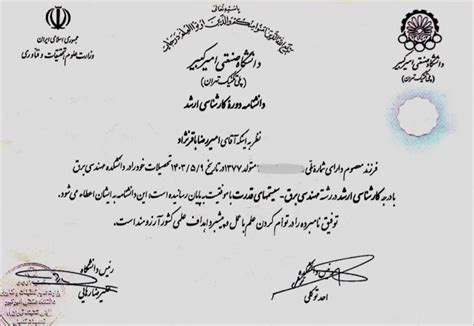 باسمه تعالی
جمهوری اسلامی ایران
وزارت علوم، تحقیقات و فناوری
دانشگاه صنعتی امیرکبیر
(پلی تکنیک تهران)
دانشنامه دوره کارشناسی ارشد
نظر به اینکه آقای امیررضا باقرنژاد
فرزند معصوم دارای شماره ملی متولد ۱۳۷۷ در تاریخ ۱۴۰۳/۵/۱ تحصیلات خود را در دانشکده مهندسی برق
با درجه کارشناسی ارشد در رشته مهندسی برق - سیستمهای قدرت با موفقیت به پایان رسانیده است؛ این دانشنامه به ایشان اعطاء می شود.
توفیق نامبرده را در توأم کردن علم با عمل و پیشبرد اهداف علمی کشور آرزومند است.
رئیس دانشگاه
علیرضا رهایی
رئیس دانشکده
احد توکلی